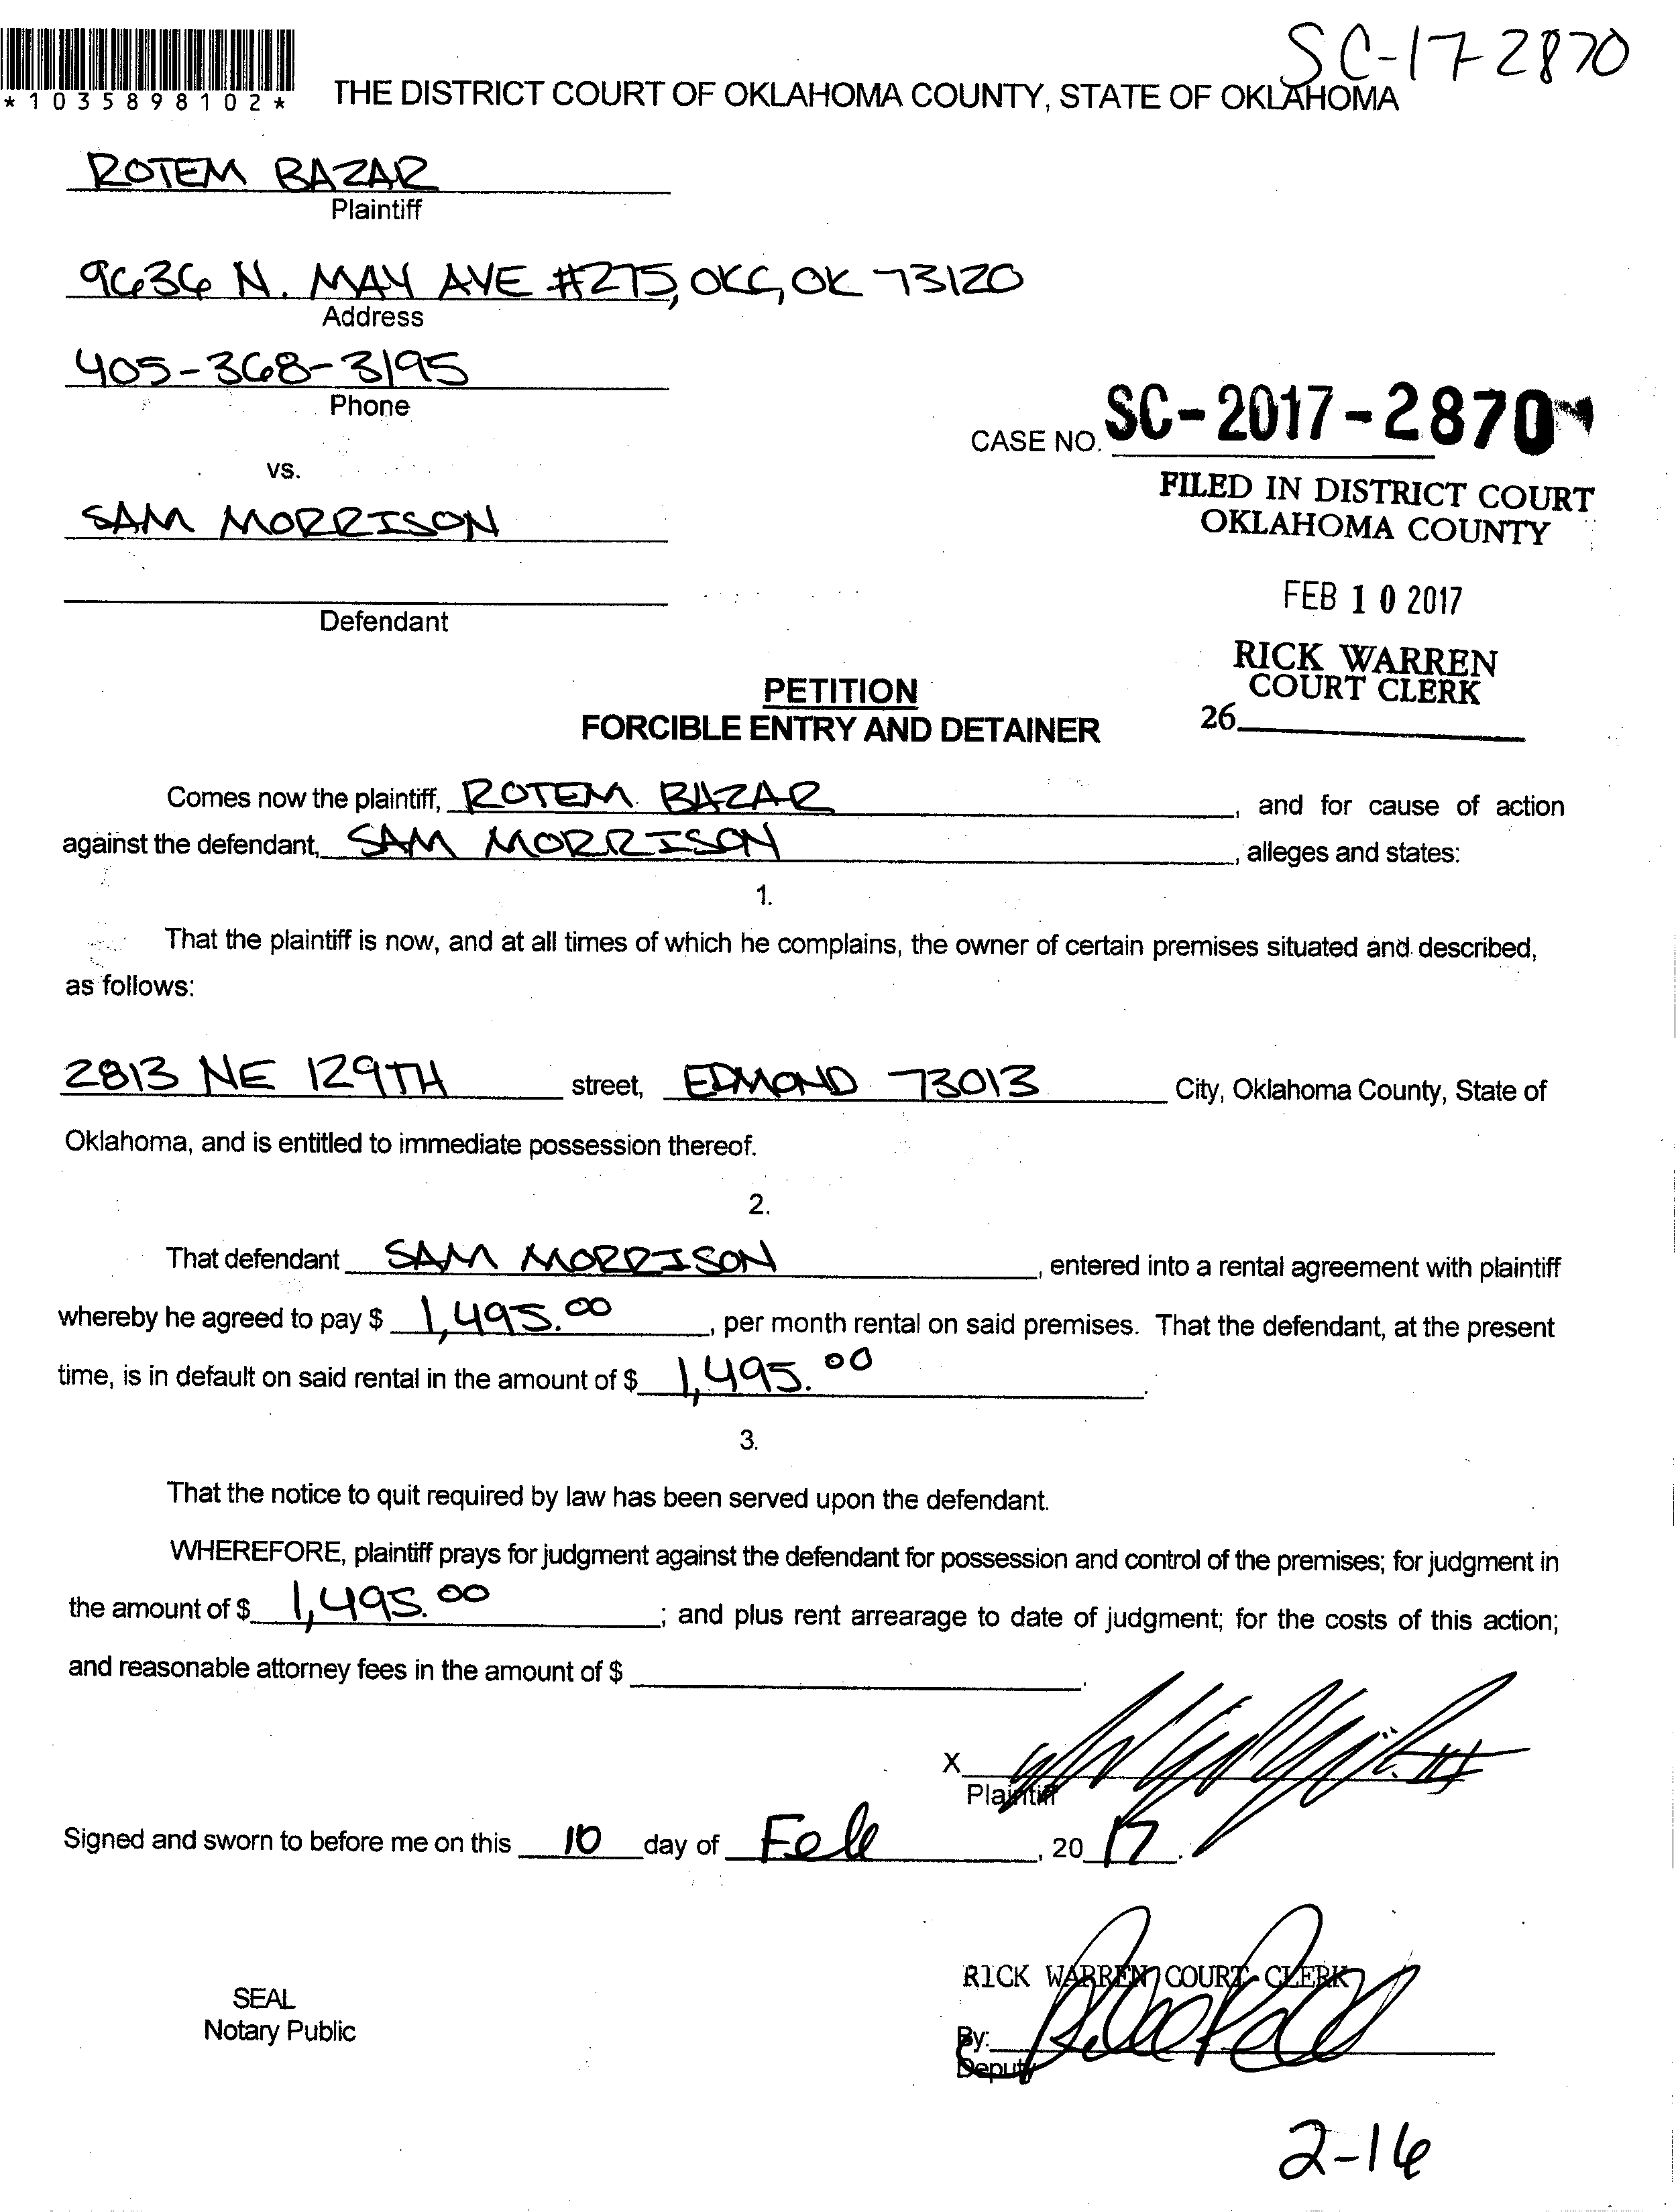 SC-17-2870
*1035898102*
THE DISTRICT COURT OF OKLAHOMA COUNTY, STATE OF OKLAHOMA
ROTEM BAZAR
Plaintiff
9636 N. MAY AVE #275, OKC, OK 73120
Address
405-368-3195
Phone
CASE NO. SC-2017-2870
vs.
FILED IN DISTRICT COURT
OKLAHOMA COUNTY
SAM MORRISON
FEB 10 2017
Defendant
RICK WARREN
COURT CLERK
26
PETITION
FORCIBLE ENTRY AND DETAINER
Comes now the plaintiff, ROTEM BAZAR, and for cause of action
against the defendant, SAM MORRISON, alleges and states:
1.
That the plaintiff is now, and at all times of which he complains, the owner of certain premises situated and described,
as follows:
2813 NE 129TH street, EDMOND 73013 City, Oklahoma County, State of
Oklahoma, and is entitled to immediate possession thereof.
2.
That defendant SAM MORRISON, entered into a rental agreement with plaintiff
whereby he agreed to pay $ 1,495.00, per month rental on said premises. That the defendant, at the present
time, is in default on said rental in the amount of $ 1,495.00.
3.
That the notice to quit required by law has been served upon the defendant.
WHEREFORE, plaintiff prays for judgment against the defendant for possession and control of the premises; for judgment in
the amount of $ 1,495.00; and plus rent arrearage to date of judgment; for the costs of this action;
and reasonable attorney fees in the amount of $ .
X
Plaintiff
Signed and sworn to before me on this 10 day of Feb, 2017.
RICK WARREN COURT CLERK
SEAL
Notary Public
By:
Deputy
2-16